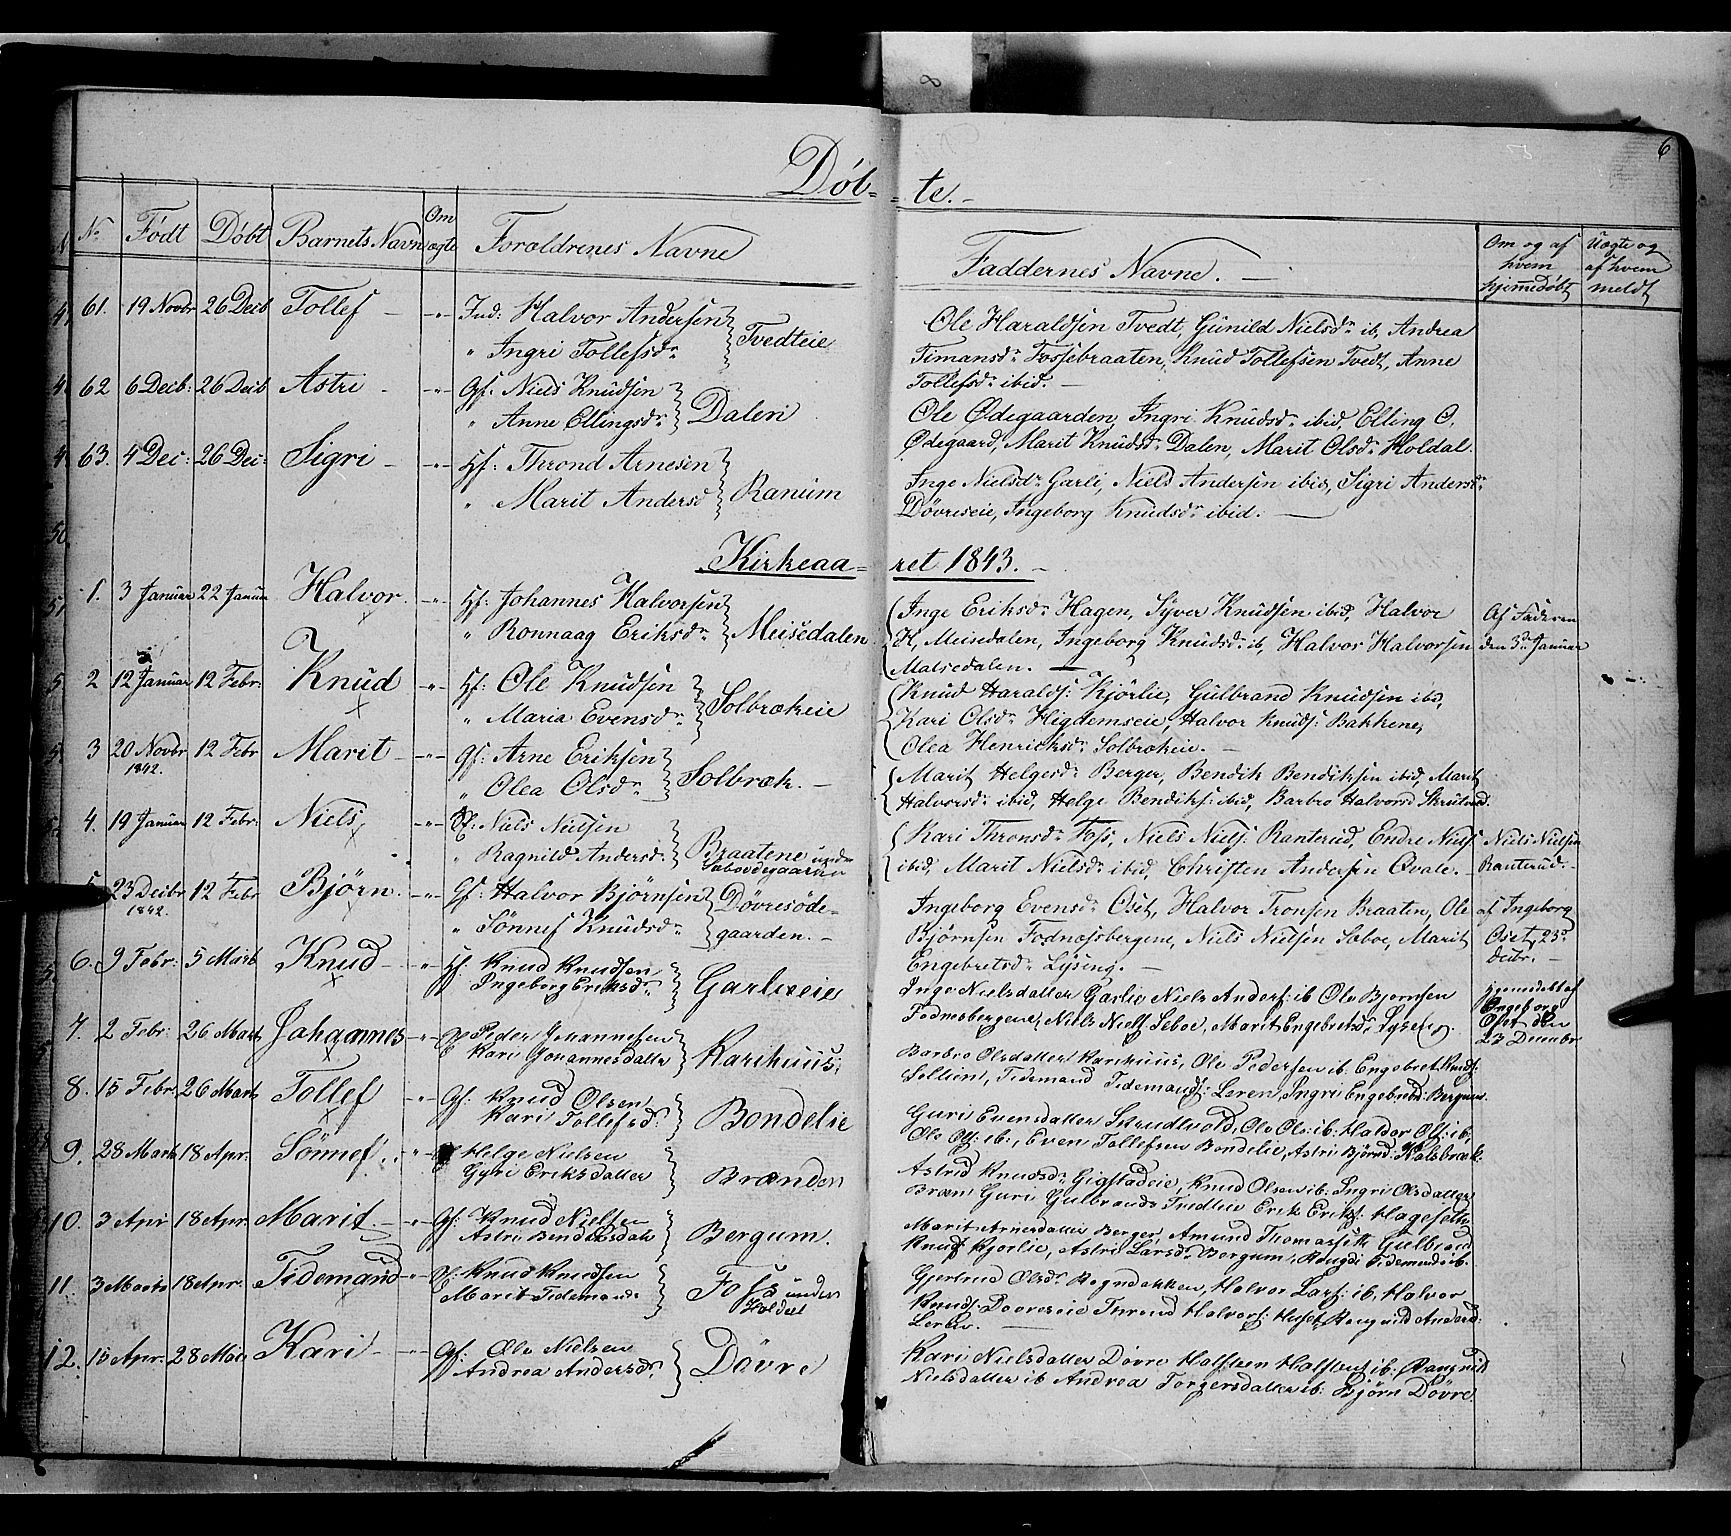 6
Døb- te.-
No Født Døbt Barnets Navn Om ægte Forældrenes Navne Faddernes Navne. Om og af hvem hjemedøbt Uægte og af hvem meldt
61. 19 Novbr 26 Decb Tollef - -"- Ind: Halvor Andersen
" Ingri Tollefsdr Tvedteie
Ole Haraldsen Tvedt, Gunild Nielsdr ib, Andrea
Timansdr Fossebraaten, Knud Tollefsen Tvedt, Anne
Tollefsdr ibid. -
62 6 Decb: 26 Decb Astri - -"- Gf: Niels Knudsen
" Anne Ellingsdr Dalen
Ole Ødegaarden, Ingri Knudsdr ibid, Elling O.
Ødegaard, Marit Knudsdr Dalen, Marit Olsdr Holdal.
63. 4 Dec: 26 Dec: Sigri - -"- Hf: Thrond Arnesen
" Marit Andersd Ranum
Inge Nielsdr Garli, Niels Andersen ibid, Sigri Andersdr
Dövreseie, Ingeborg Knudsdr ibid. -
Kirkeaa- ret 1843. -
1. 3 Januar 22 Januar Halvor. -"- Hf: Johannes Halvorsen
" Ronnaag Eriksdr Meisedalen
Inge Eriksdr Hagen, Syver Knudsen ibid, Halvor
H, Meisedalen, Ingeborg Knudsdr ib, Halvor Halvorsen
Maisedalen. -
Af Faderen
den 3d Januar
2 12 Januar 12 Febr: Knud -"- Hf: Ole Knudsen
" Maria Evensdr Solbrækeie
Knud Haralds: Kjörlie, Gulbrand Knudsen ibd,
Kari Olsdr Higdemseie, Halvor Knuds: Bakkene,
Olea Henriksdr Solbrækeie. -
3 20 Novbr 1842. 12 Febr Marit - -"- Gf: Arne Eriksen
" Olea Olsdr Solbræk. -
Marit Helgesdr Berger, Bendik Bendiksen ibid, Marit
Halvorsdr ibid, Helge Bendiks: ibid, Barbro Halvorsd Skrutvod.
4. 19 Januar 12 Febr: Niels -"- Niels Nielsen
" Ragnild Andersdr Braatene under
Sæboødegaarden
Kari Thronsdr Foss, Niels Niels: Ranterud, Endre Niels
ibid, Marit Nielsdr ibid, Christen Andersen Qvale. -
Niels Nielsen
Ranterud. -
5 23 Decbr 1842. 12 Febr Bjørn. -"- Gf: Halvor Bjørnsen
" Sønnef Knudsdr Dövresöde-
gaarden. -
Ingeborg Evensdr Oset, Halvor Tronsen Braaten, Ole
Bjørnsen Fodnæssbergene, Niels Nielsen Sæboe, Marit
Engebretsdr Lyseng. -
af Ingeborg
Oset, 23d
decbr. -
6. 9 Febr: 5 Marts Knud - " Hf Knud Knudsen
Ingeborg Eriksdr. Garlieeie
Inge Nielsdatter Garlie Niels Anders: ib Ole Bjornsen
Fodnesbergene, Niels Niels Seboe, Marit Engebretsdr Lyseng.
Hjemedøbt af
Ingeborg
Oset den
23 Decembr
7. 2 Febr: 26 Marts Johannes -"- Peder Johannesen
Kari Johannesdatter Karihuus;
Barbro Olsdatter Karihuus, Ole Pedersen ib: Engebret Knuds:
Sollien, Tidemand Tidemands: Leren, Ingri Engebrets: Bergum.
8. 15 Febr 26 Marts Tollef -"- Gf: Knud Olsen
Kari Tollefsd: Bondelie
Guri Evensdatter Skrudvold, Ole Ols: ib: Haldor Ols: ib:
Ole Ols: ib:, Even Tollefsen Bondelie, Astri Bjørnd: Kolsbræk.
9. 28 Marts 18 Apr: Sønnef. -"- Helge Nielsen
Gyri Eriksdatter Brænden
Astrid Knudsdr Gigstadeie, Knud Olsen ib: Ingri Olsdatter
Bræn Guri Gulbrands Tredlien Erik Eriks: Hagesette
10. 3 Apr 18 Apr. Marit -"- Gf: Knud Nielsen
Astri Bendiksdatr Bergum.
Marit Arnesdatter Berger, Amund Thomasset: Gulbrand
Knuds Kjorlie, Astri Larsdr Bergum, Tidemand ib.
11. 3 Marts 18 Apr. Tidemand -"- Gf: Knud Knudsen
Marit Tidemands Foss under
Holdal
Gjertrud Olsdr Rogndokken, Halvor Lars: ib, Halvor
Knuds: Dovreseie Thrond Halvors: Huset, Rangnid Andersd:
Leren.
12. 15 Apr: 28 Mai Kari - -"- Gf: Ole Nielsen
Andrea Andersdr. Dövre
Kari Nielsdatter Dövre Halsten Halstens: ib: Rangnild
Nielsdatter ib Andrea Torgersdatter ib: Bjørn Dövre.